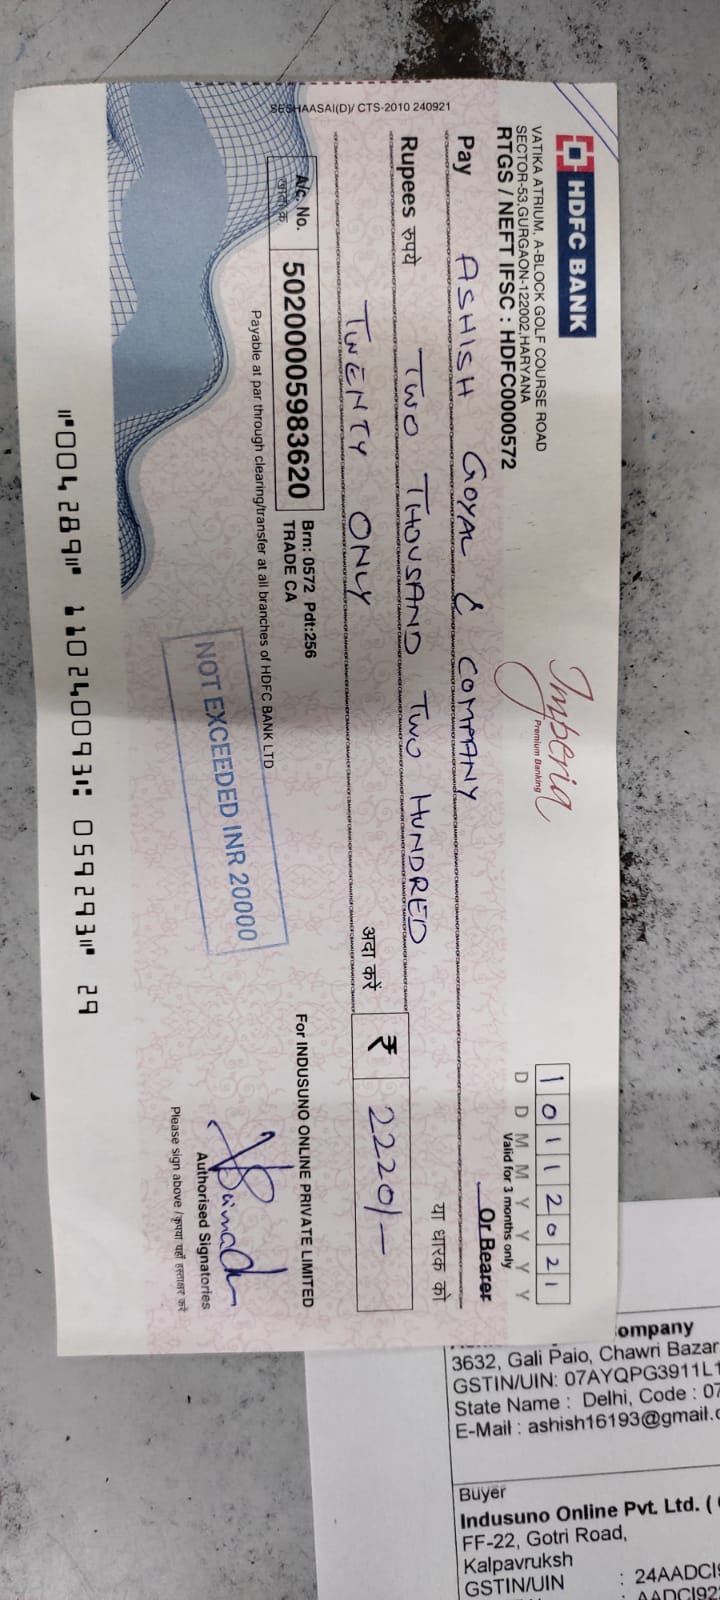 SESHAASAI(D)/ CTS-2010 240921
HDFC BANK
VATIKA ATRIUM, A-BLOCK GOLF COURSE ROAD
SECTOR-53,GURGAON-122002,HARYANA
RTGS / NEFT IFSC : HDFC0000572
Imperia
Premium Banking
10112021
D D M M Y Y Y Y
Valid for 3 months only
Pay ASHISH GOYAL & COMPANY Or Bearer
या धारक को
Rupees रुपये TWO THOUSAND TWO HUNDRED
TWENTY ONLY अदा करें ₹ 2220/-
A/c. No. 50200005983620
Brn: 0572 Pdt:256
TRADE CA
Payable at par through clearing/transfer at all branches of HDFC BANK LTD
NOT EXCEEDED INR 20000
For INDUSUNO ONLINE PRIVATE LIMITED
Authorised Signatories
Please sign above / कृपया यहाँ हस्ताक्षर करें
⑈004289⑈ 110240093⑆ 059293⑈ 29
ompany
3632, Gali Paio, Chawri Bazar
GSTIN/UIN: 07AYQPG3911L1
State Name : Delhi, Code : 07
E-Mail : ashish16193@gmail.c
Buyer
Indusuno Online Pvt. Ltd. (
FF-22, Gotri Road,
Kalpavruksh
GSTIN/UIN : 24AADCI9
: AADCI92